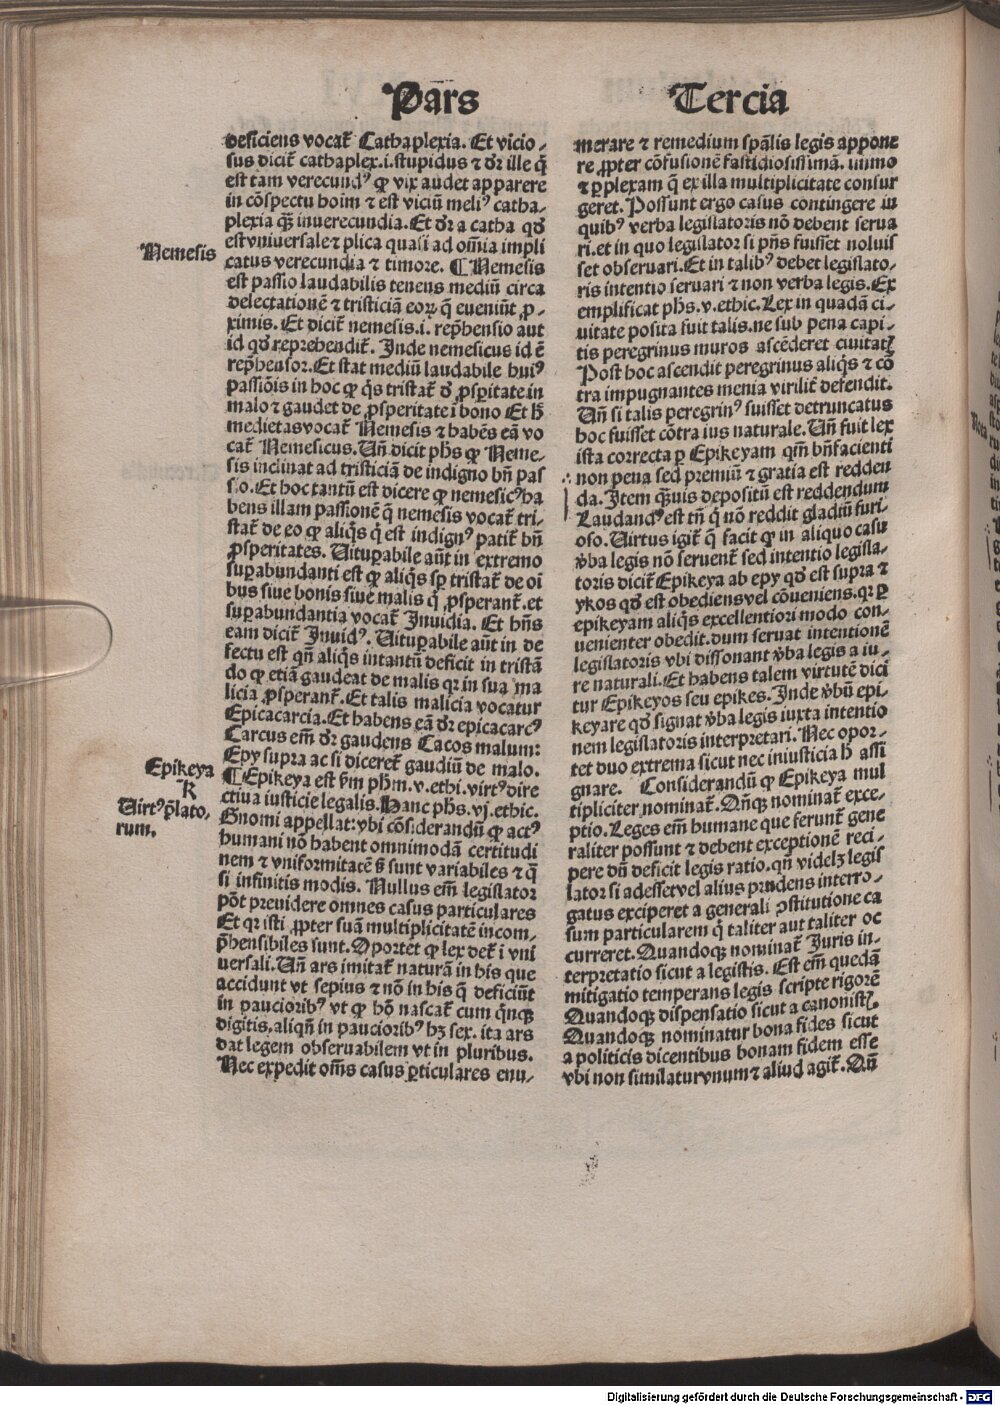 Pars Tercia
deficiens vocat̄ Cathaplexia. Et vicio-
sus dicit̄ cathaplex.i.stupidus ⁊ dr̄ ille q̄
est tam verecundꝰ ꝙ vix audet apparere
in cōspectu hoim ⁊ est viciū meliꝰ catha-
plexia qȝ inuerecundia. Et dr̄ a catha qd̄
est vniuersale ⁊ plica quasi ad om̄ia impli
catus verecundia ⁊ timore. ¶ Nemesis
est passio laudabilis tenens mediū circa
delectationē ⁊ tristiciā eoꝝ q̄ eueniūt ꝓ-
ximis. Et dicit̄ nemesis.i. rep̄hensio aut
id qd̄ reprehendit̄. Inde nemesicus id ē
rep̄hensor. Et stat mediū laudabile huiꝰ
passiōis in hoc ꝙ q̄s tristat̄ d̄ ꝓsꝑitate in
malo ⁊ gaudet de ꝓsperitate ī bono Et h̄
medietas vocat̄ Nemesis ⁊ habēs eā vo
cat̄ Nemesicus. Un̄ dicit ph̄s ꝙ Neme-
sis inclinat ad tristiciā de indigno bn̄ pas
so. Et hoc tantū est dicere ꝙ nemesicꝰ ha
bens illam passionē q̄ nemesis vocat̄ tri-
stat̄ de eo ꝙ aliq̄s q̄ est indignꝰ patit̄ bn̄
ꝓsperitates. Uituꝑabile aūt in extremo
suꝑabundanti est ꝙ aliq̄s sꝑ tristat̄ de oi
bus siue bonis siue malis q̄ ꝓsperant̄. et
suꝑabundantia vocat̄ Inuidia. Et hn̄s
eam dicit̄ Inuidꝰ. Uituꝑabile aūt in de
fectu est qn̄ aliq̄s intantū deficit in tristā
do ꝙ etiā gaudeat de malis qr in sua ma
licia ꝓsperant̄. Et talis malicia vocatur
Epicacarcia. Et habens eā dr̄ epicacarcꝰ
Carcus em̄ dr̄ gaudens Cacos malum:
Epy supra ac si diceret̄ gaudiū de malo.
¶ Epikeya est ẜm ph̄m.v.ethi.virtꝰ dire
ctiua iusticie legalis. Hanc ph̄s.vj.ethic.
Gnomi appellat: vbi cōsiderandū ꝙ actꝰ
humani nō habent omnimodā certitudi
nem ⁊ vniformitatē ẜ sunt variabiles ⁊ q̄
si infinitis modis. Nullus em̄ legislator
pōt preuidere omnes casus particulares
Et qr isti ꝓpter suā multiplicitatē incom-
p̄hensibiles sunt. Oportet ꝙ lex det̄ ī vni
uersali. Un̄ ars imitat̄ naturā in his que
accidunt vt sepius ⁊ nō in his q̄ deficiūt
in paucioribꝰ vt ꝙ hō nascat̄ cum q̄nqȝ
digitis. aliqn̄ in paucioribꝰ hȝ sex. ita ars
dat legem obseruabilem vt in pluribus.
Nec expedit om̄s casus ꝑticulares enu-
Nemesis
Epikeya
K
Uirtꝰ p̄lato-
rum.
merare ⁊ remedium sp̄alis legis appone
re ꝓpter cōfusionē fastidiosissimā. immo
⁊ ꝑplexam q̄ ex illa multiplicitate consur
geret. Possunt ergo casus contingere in
quibꝰ verba legislatoris nō debent serua
ri. et in quo legislator si p̄ns fuisset noluis
set obseruari. Et in talibꝰ debet legislato-
ris intentio seruari ⁊ non verba legis. Ex
emplificat ph̄s.v.ethic. Lex in quadā ci-
uitate posita fuit talis. ne sub pena capi-
tis peregrinus muros ascēderet ciuitatꝭ
Post hoc ascendit peregrinus aliq̄s ⁊ cō
tra impugnantes menia virilit̄ defendit.
Un̄ si talis peregrinꝰ fuisset detruncatus
hoc fuisset cōtra ius naturale. Un̄ fuit lex
ista correcta ꝑ Epikeyam qm̄ bn̄facienti
non pena sed premiū ⁊ gratia est redden
da. Item qȝuis depositū est reddendum
Laudandꝰ est tn̄ q̄ nō reddit gladiū furi-
oso. Uirtus igit̄ q̄ facit ꝙ in aliquo casu
v̄ba legis nō seruent̄ sed intentio legisla-
toris dicit̄ Epikeya ab epy qd̄ est supra ⁊
ykos qd̄ est obediens vel cōueniens. qr ꝑ
epikeyam aliq̄s excellentiori modo con-
uenienter obedit. dum seruat intentionē
legislatoris vbi dissonant v̄ba legis a iu-
re naturali. Et habens talem virtutē dici
tur Epikeyos seu epikes. Inde v̄bū epi-
keyare qd̄ signat v̄ba legis iuxta intentio
nem legislatoris interpretari. Nec opor-
tet duo extrema sicut nec iniusticia h̄ assi
gnare. Considerandū ꝙ Epikeya mul
tipliciter nominat̄. Qn̄qȝ nominat̄ exce-
ptio. Leges em̄ humane que ferunt̄ gene
raliter possunt ⁊ debent exceptionē reci-
pere dū deficit legis ratio. qn̄ videlȝ legis
lator si adesset vel alius prudens interro-
gatus exciperet a generali ꝯstitutione ca
sum particularem q̄ taliter aut taliter oc
curreret. Quandoqȝ nominat̄ Iuris in-
terpretatio sicut a legistis. Est em̄ quedā
mitigatio temperans legis scripte rigorē
Quandoqȝ dispensatio sicut a canonistꝭ.
Quandoqȝ nominatur bona fides sicut
a politicis dicentibus bonam fidem esse
vbi non similatur vnum ⁊ aliud agit̄. Un̄
Nota
Digitalisierung gefördert durch die Deutsche Forschungsgemeinschaft - DFG